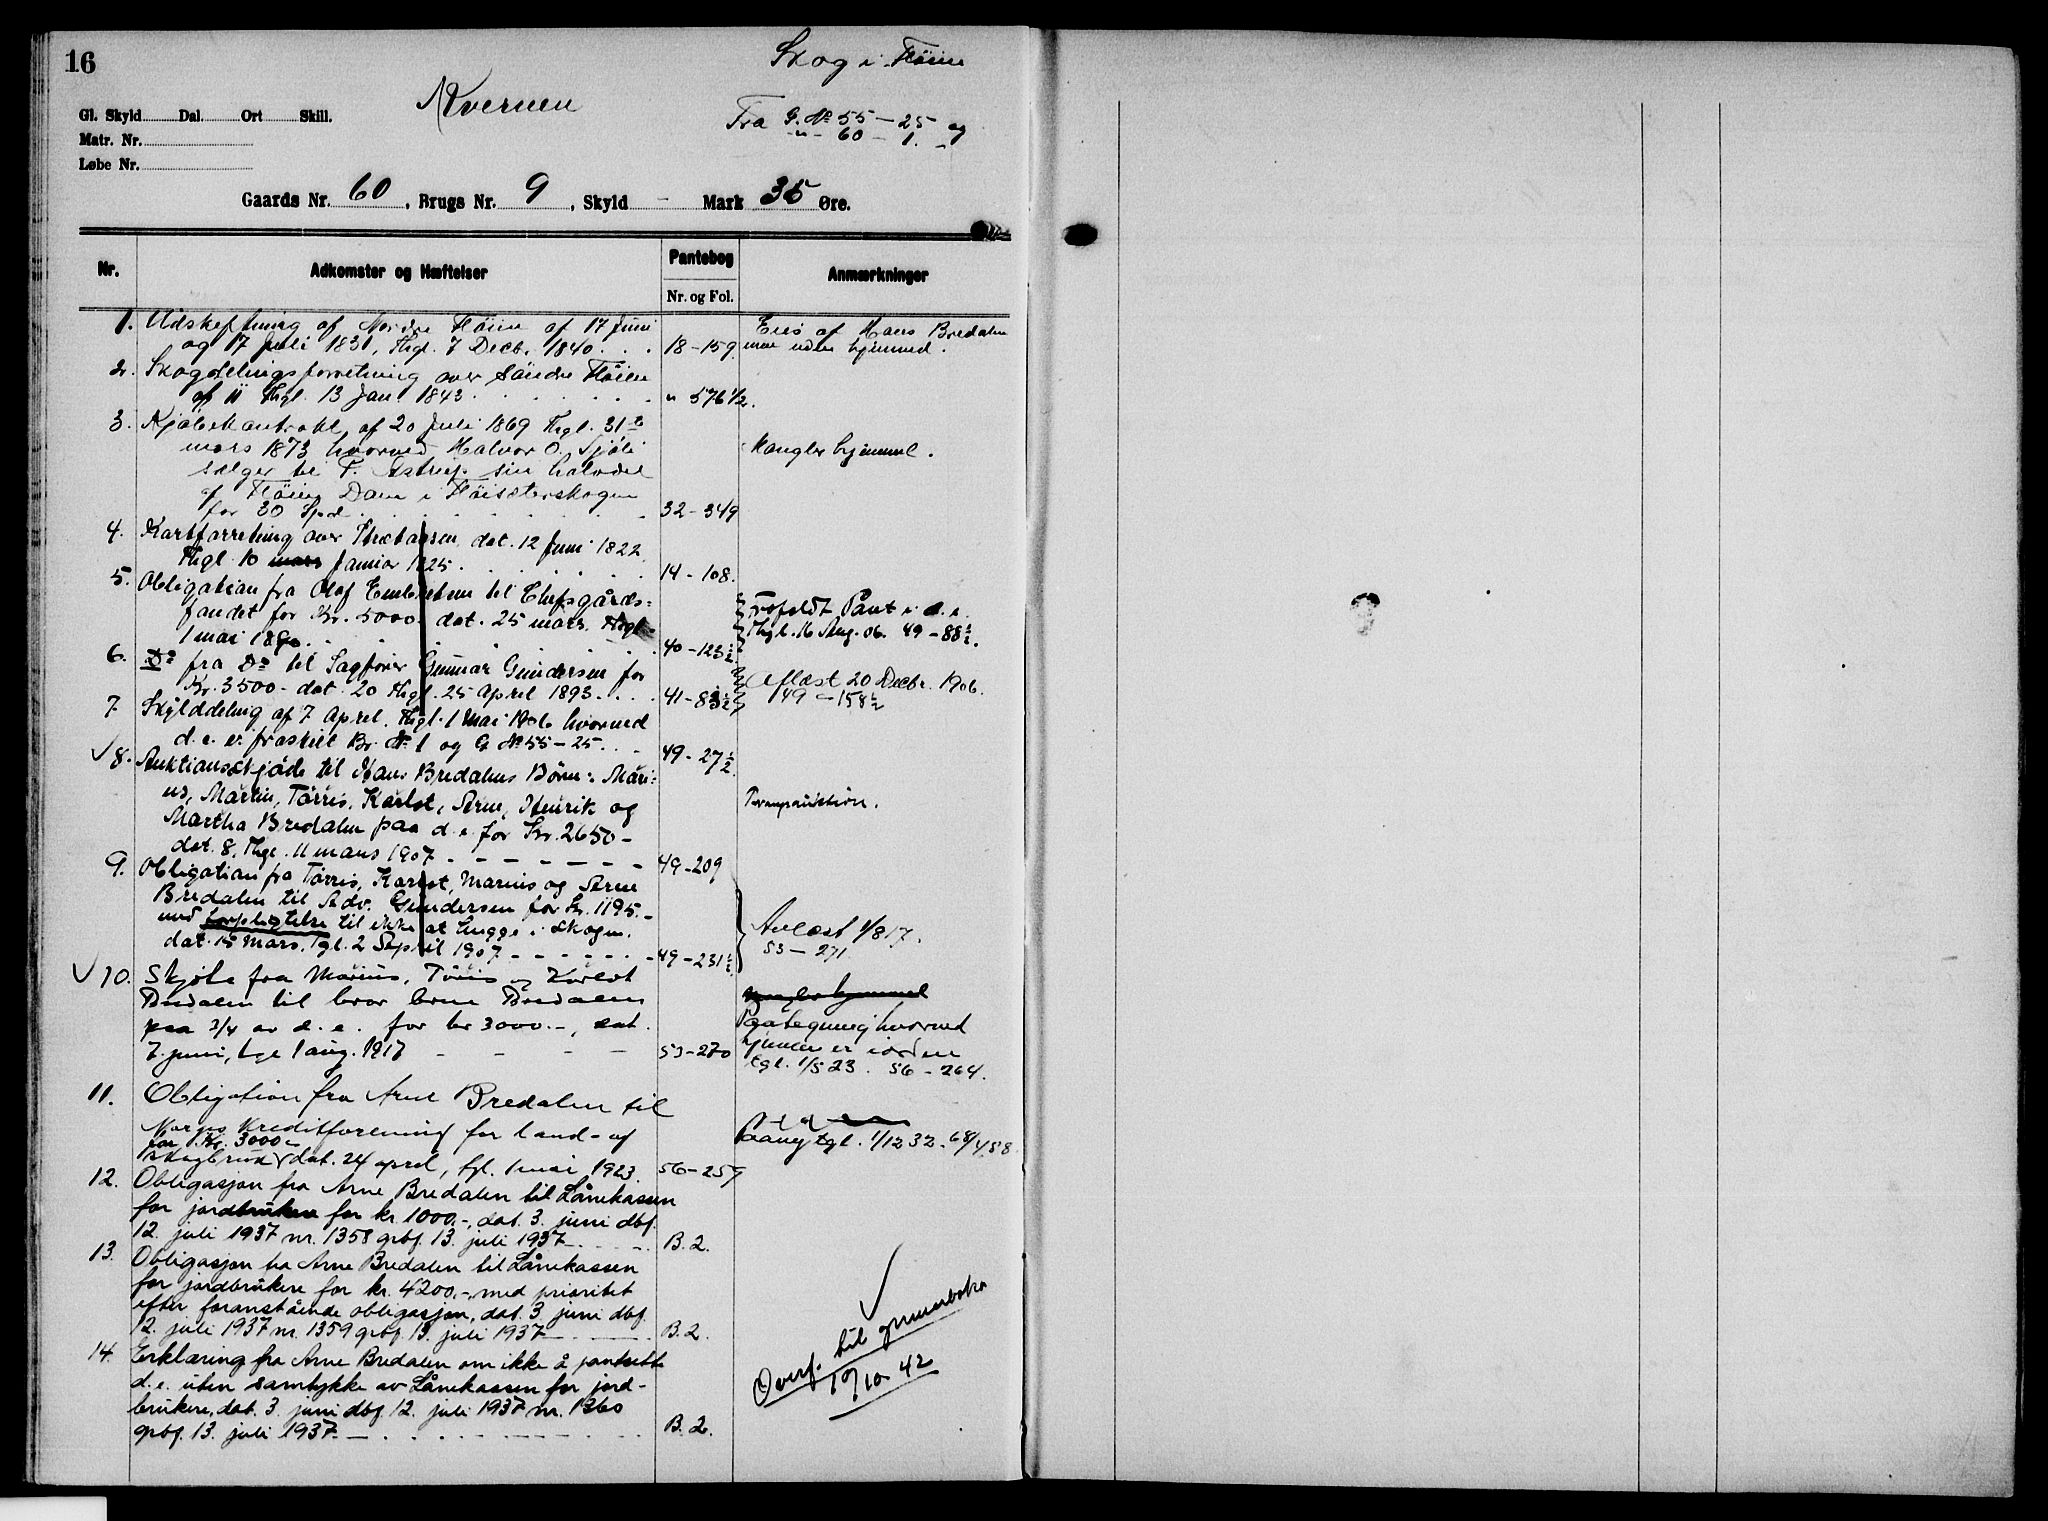 16
Skog i Fløien
Kvernen
Fra G. No 55 – 25 og
-"- 60 – 1.
Gl. Skyld Dal. Ort Skill.
Matr. Nr.
Løbe Nr.
Gaards Nr. 60, Brugs Nr. 9, Skyld – Mark 35 Øre.
Nr. Adkomster og Hæftelser Pantebog Nr. og Fol. Anmærkninger
1. Udskiftning af Nordre Fløien af 17 Juni
og 17 Juli 1831, Thgl. 7 Decb. 1840 . . . 18 – 159.
Eies af Hans Bredalen
men uden hjemmel.
2. Skogdelingsforretning over Søndre Fløien
af 11 Thgl. 13 Jan. 1843 . . . " 576 1/2.
3. Kjøbekontrakt af 20 Juli 1869 Thgl. 31te
mars 1873 hvorved Halvor O. Sjøli
sælger til F. Astrup sin halvdel
af Fløien Dam i Fløisæterskogen
for 30 Spd. . . . 32 – 349
Mangler hjemmel.
4. Kartforretning over dat. 12 Juni 1822
Thgl. 10 mars Januar 1825 . . . 14 – 108.
5. Obligation fra Olaf Embretsen til
fondet for Kr. 5000 dat. 25 mars, Thgl.
1 mai 1890 . . . 40 – 123 1/2
Frafaldt Pant i d. e.
Thgl. 16 Aug. 06. 49 – 88 1/2.
6. Do fra Do til Sagfører Gunnar Gundersen for
Kr. 3500 – dat. 20 Thgl. 25 April 1893 . . . 41 – 83 1/2
Aflæst 20 Decbr. 1906.
49 – 158 1/2
7. Skylddeling af 7 April, Thgl. 1 Mai 1906 hvorved
d. e. er fraskilt Br. No 1 og G. No 55 – 25 . . . 49 – 27 1/2.
✓ 8. Auktionsskjøde til Hans Bredalens Børn: Mari-
us, Martin, Tørris, Karlot, Arne, Henrik og
Martha Bredalen paa d. e. for Kr. 2650 –
dat. 8, Thgl. 11 mars 1907 – – – 49 – 209
Tvangsauktion.
9. Obligation fra Tørris, Karlot, Marius og Arne
Bredalen til Adv. Gundersen for Kr. 1195. –
med forpligtelse til ikke at hugge i skogen.
dat. 15 Mars, Tgl. 2 1907 – – – 49 – 231 1/2.
Avlæst 1/8 17.
53 – 271
✓ 10. Skjøte fra Marius, Tørris og Karlot
Bredalen til bror Arne Bredalen
paa 3/4 av d. e. for kr 3000. –, dat.
7. juni, tgl 1 aug. 1917 – – – 53 – 270
Mangler hjemmel
Paategning hvorved
hjemmelen er i orden
tgl. 1/5 23. 56 – 264.
11. Obligation fra Arne Bredalen til
Norges Kreditforening for land- og
for Kr. 3000 –
skogbruk dat. 24 april, tgl. 1 mai 1923. 56 – 259
Paateg. tgl. 1/12 32. 68/458.
12. Obligasjon fra Arne Bredalen til Lånekassen
for jordbrukere for kr. 1000. –, dat. 3. juni dbf.
12. juli 1937 nr. 1358 grbf. 13. juli 1937 . . . B. 2.
13. Obligasjon fra Arne Bredalen til Lånekassen
for jordbrukere for kr. 4200. –, med prioritet
efter foranstående obligasjon, dat. 3. juni dbf.
12. juli 1937 nr. 1359 grbf. 13. juli 1937 . . . B. 2.
14. Erklæring fra Arne Bredalen om ikke å pantsette
d. e. uten samtykke av Lånekassen for jord-
brukere, dat. 3. juni dbf. 12. juli 1937 nr. 1360
grbf. 13. juli 1937 – . . . B. 2.
✓
Overf. til grunnboka
10/10 42